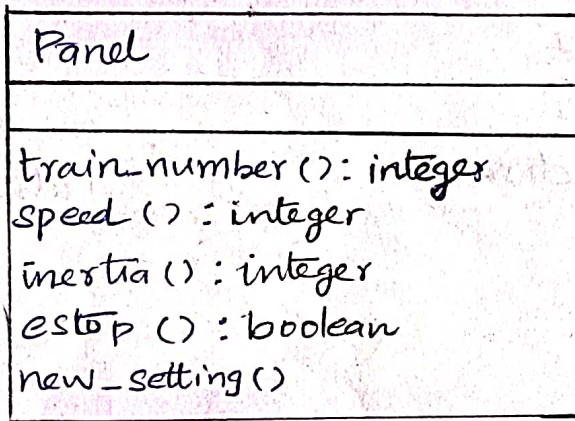 Panel
train_number () : integer
speed () : integer
inertia () : integer
estop () : boolean
new_setting ()